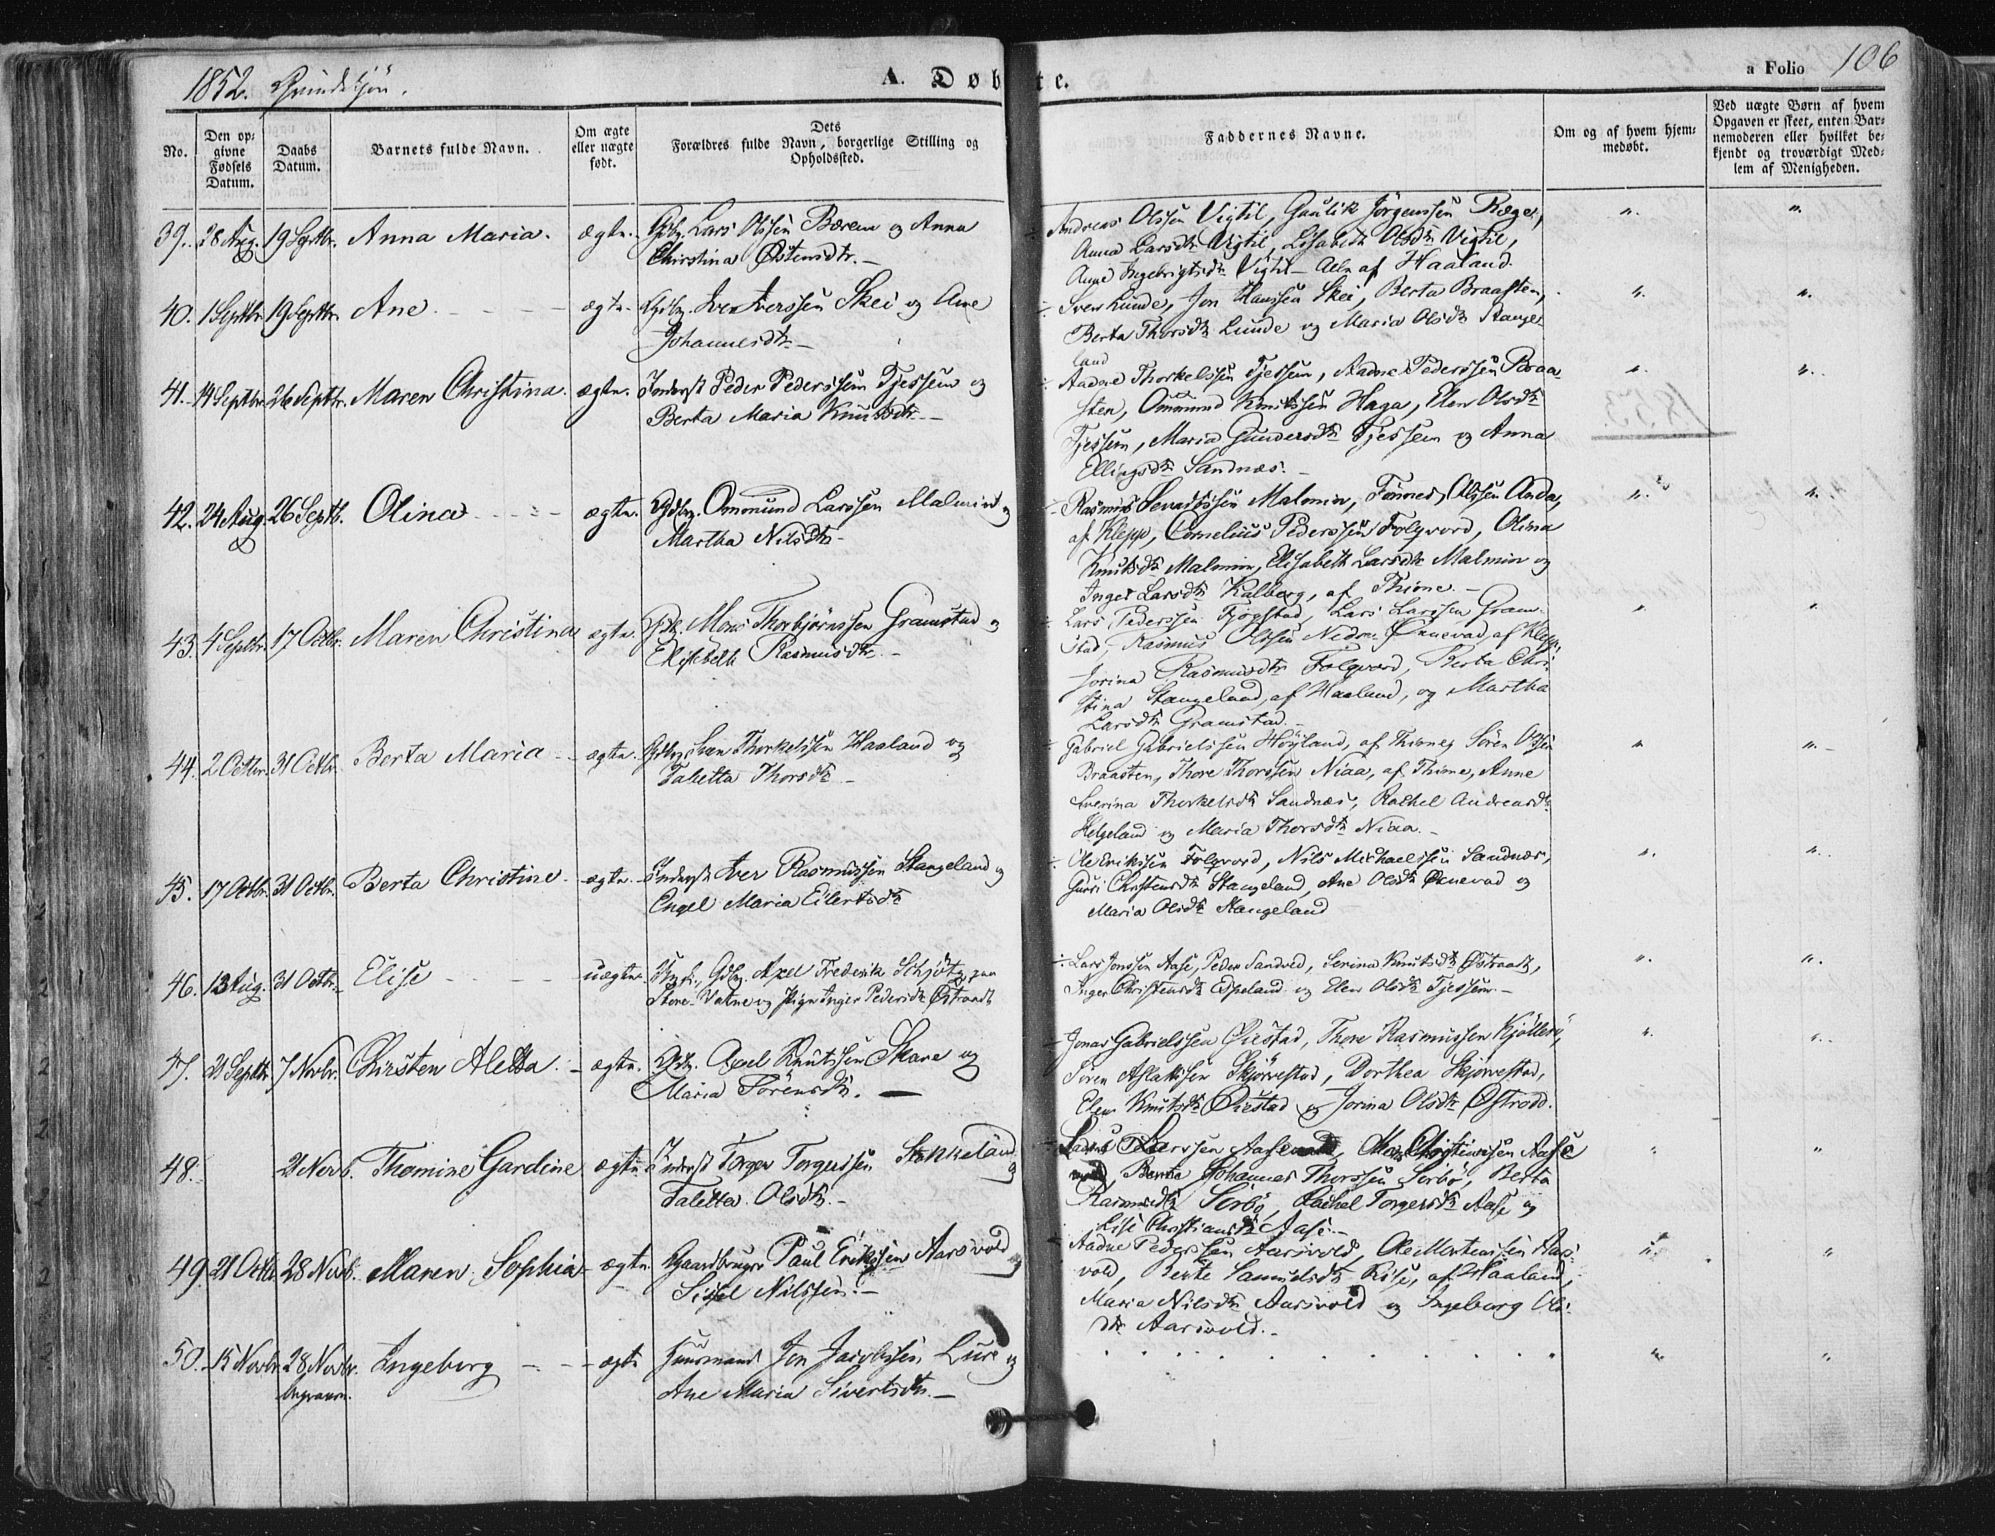 1852. Qvindekjön.
A. Døbte.
a Folio 106
No.
Den op-
givne
Fødsels
Datum.
Daabs
Datum.
Barnets fulde Navn.
Om ægte
eller uægte
født.
Dets
Forældres fulde Navn, borgerlige Stilling og
Opholdssted.
Faddernes Navne.
Om og af hvem hjem-
medøbt.
Ved uægte Børn af hvem
Opgaven er skeet, enten Bar-
nemoderen eller hvilket be-
kjendt og troværdigt Med-
lem af Menigheden.
39. 28 Aug. 19 Septbr. Anna Maria. ægte. Gdbr. Lars Olssen Bærem og Anna
Chirstina Østensdtr. —
Andreas Olssen Vigtil, Gaulik Jörgenssen Ræge,
Anna Larsdtr Vigtil, Lisabeth Olsdtr Vigtil,
Anne Ingebrigtsdtr Vigtil — Alle af Haaland.
40. 1 Septbr. 19 Septbr. Ane ægte. Gdbr. Iver Iverssen Skei og Ane
Johannesdtr —
Sven Lunde, Jon Hanssen Skei, Berta Braasten,
Berta Thorsdtr Lunde og Maria Olsdtr Stange-
land
41. 14 Septbr. 26 Septbr. Maren Christina. ægte. Inderst Peder Pederssen Tjessem og
Berta Maria Knutsdtr —
Aadne Thorkelssen Tjessem, Aadne Pederssen Braa-
sten, Ommund Knutssen Haga, Elen Olsdtr
Tjessem, Maria Gundersdtr Tjessem og Anna
Ellingsdtr Sandnæs. —
1853.
42. 24 Aug. 26 Septb. Olina ægte. Gdbr. Ommund Larssen Malmin og
Martha Nilsdtr —
Rasmus Malmin, Tønnes Olssen Anda,
af Klepp, Cornelius Pederssen Folqvord, Olina
Knutsdtr Malmin, Elisabeth Larsdtr Malmin og
Inger Larsdtr Kalberg, af Thime. —
43. 4 Septbr. 17 Octbr. Maren Christina ægte. Mons Thorbjørnssen Gramstad og
Elisabeth Rasmusdtr. —
Lars Pederssen Fjogstad, Lars Larssen Gram-
stad, Rasmus Olssen Nedre Ønnevad, af Klepp,
Jorina Rasmusdtr Folqvord, Berta Chri-
stina Stangeland, af Haaland, og Martha
Larsdtr Gramstad. —
44. 2 Octbr. 31 Octbr. Berta Maria ægte. Gdbr. Sven Thorkelssen Haaland og
Taletta Thorsdtr —
Gabriel Gabrielssen Höyland, af Thime, Sören Olssen
Braasten, Thore Thorssen Niaa, af Thime, Anne
Sverina Thorkelsdtr Sandnæs, Rachel Andreasdtr
Helgeland og Maria Thorsdtr Niaa. —
45. 17 Octbr. 31 Octbr. Berta Christine ægte. Inderst Iver Rasmussen Stangeland og
Engel Maria Eilertsdtr
Ole Erikssen Folqvord, Nils Michaelssen Sandnæs,
Guri Christensdtr Stangeland, Ane Olsdtr Ønnevad og
Maria Olsdtr Stangeland
46. 13 Aug. 31 Octbr. Elise uægte. Ungk., Gdbr. Axel Frederik Schjötz, paa
Store-Vatne og Pige Inger Pedersdtr Østraadt
Lars Jonssen Aase, Peder Sandved, Serina Knutsdtr Østraadt,
Inger Christensdtr Espeland og Elen Olsdtr Tjessem. —
47. 21 Septbr. 7 Novbr. Chirsten Aletta. ægte. Gdbr. Axel Knutssen Skare og
Maria Sörensdtr. —
Jonas Gabrielssen Øiestad, Thore Rasmussen Kjölleri,
Sören Aslakssen Skjörvestad, Dorthea Skjörvestad,
Elen Knutsdtr Øiestad og Jorina Olsdtr Østradt.
48. 21 Novb. Thomine Gardine ægte Inderst Torger Torgerssen Stokkeland og
Taletta Olsdtr. —
Larssen Aase, Christianssen Aase
Johannes Thorssen Sörbö, Berta
Rasmusdtr Sörbö, Rachel Torgersdtr Aase og
Lise Christiansdtr Aase. —
49. 21 Octbr. 28 Novb. Maren Sophia ægte. Gaardbruger Paul Erikssen Aarsvold og
Sissel Nilssen. —
Aadne Pederssen Aarsvold, Ole Mortenssen Aars-
vold, Berte Samuelsdtr Riise, af Haaland,
Maria Nilsdtr Aarsvold og Ingeborg Ols-
dtr Aarsvold. —
50. 15 Novbr. 28 Novbr. Ingeborg ægte Huusmand Jon Jacobssen Lure og
Ane Maria Sivertsdtr. —